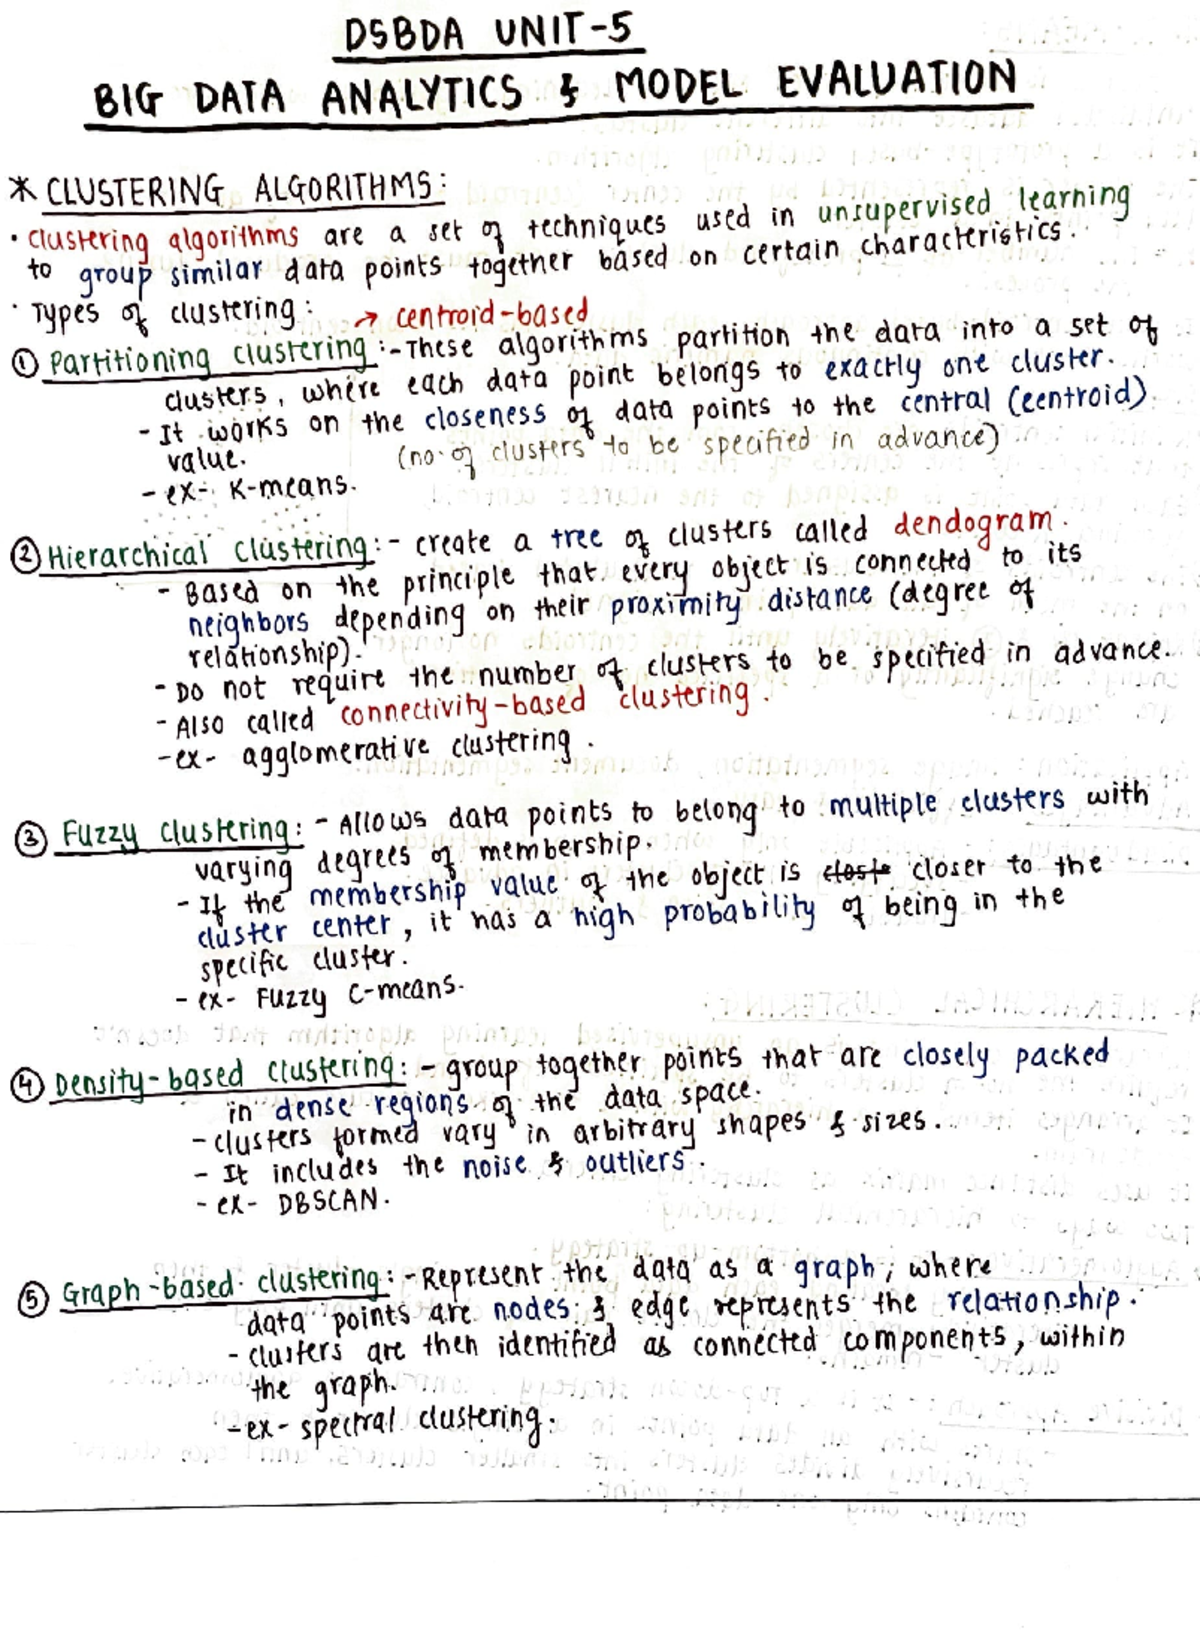 DSBDA UNIT-5
BIG DATA ANALYTICS & MODEL EVALUATION
* CLUSTERING ALGORITHMS:
· clustering algorithms are a set of techniques used in unsupervised learning
to group similar data points together based on certain characteristics.
· Types of clustering:
→ centroid-based
① Partitioning clustering :- These algorithms partition the data into a set of
clusters, where each data point belongs to exactly one cluster.
- It works on the closeness of data points to the central (centroid)
value. (no. of clusters to be specified in advance)
- ex- K-means.
② Hierarchical clustering :- create a tree of clusters called dendogram.
- Based on the principle that every object is connected to its
neighbors depending on their proximity distance (degree of
relationship).
- Do not require the number of clusters to be specified in advance.
- Also called connectivity-based clustering.
- ex- agglomerative clustering.
③ Fuzzy clustering: - Allows data points to belong to multiple clusters with
varying degrees of membership.
- If the membership value of the object is closer to the
cluster center, it has a high probability of being in the
specific cluster.
- ex- Fuzzy C-means.
④ Density-based clustering: - group together points that are closely packed
in dense regions of the data space.
- clusters formed vary in arbitrary shapes & sizes.
- It includes the noise & outliers.
- ex- DBSCAN.
⑤ Graph-based clustering :- Represent the data as a graph, where
data points are nodes & edge represents the relationship.
- clusters are then identified as connected components, within
the graph.
- ex- spectral clustering.